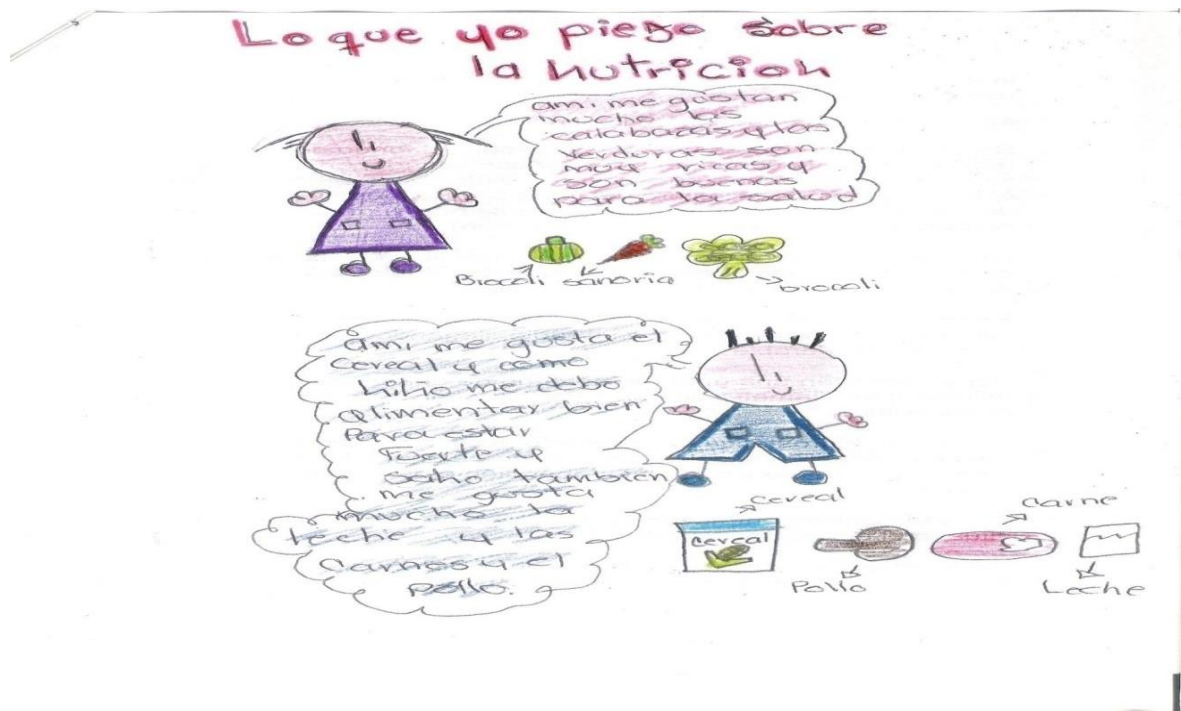 Lo que yo piezo sobre
la nutricion
ami me gustan
mucho las
calabazas y las
verduras son
muy ricas y
son buenas
para la salud
Brocoli sanoria
brocoli
ami me gusta el
cereal y como
niño me debo
alimentar bien
Para estar
Fuerte y
sano tambien
me gusta
mucho la
leche y las
Carnes y el
pollo.
cereal
Carne
cereal
Pollo
Leche